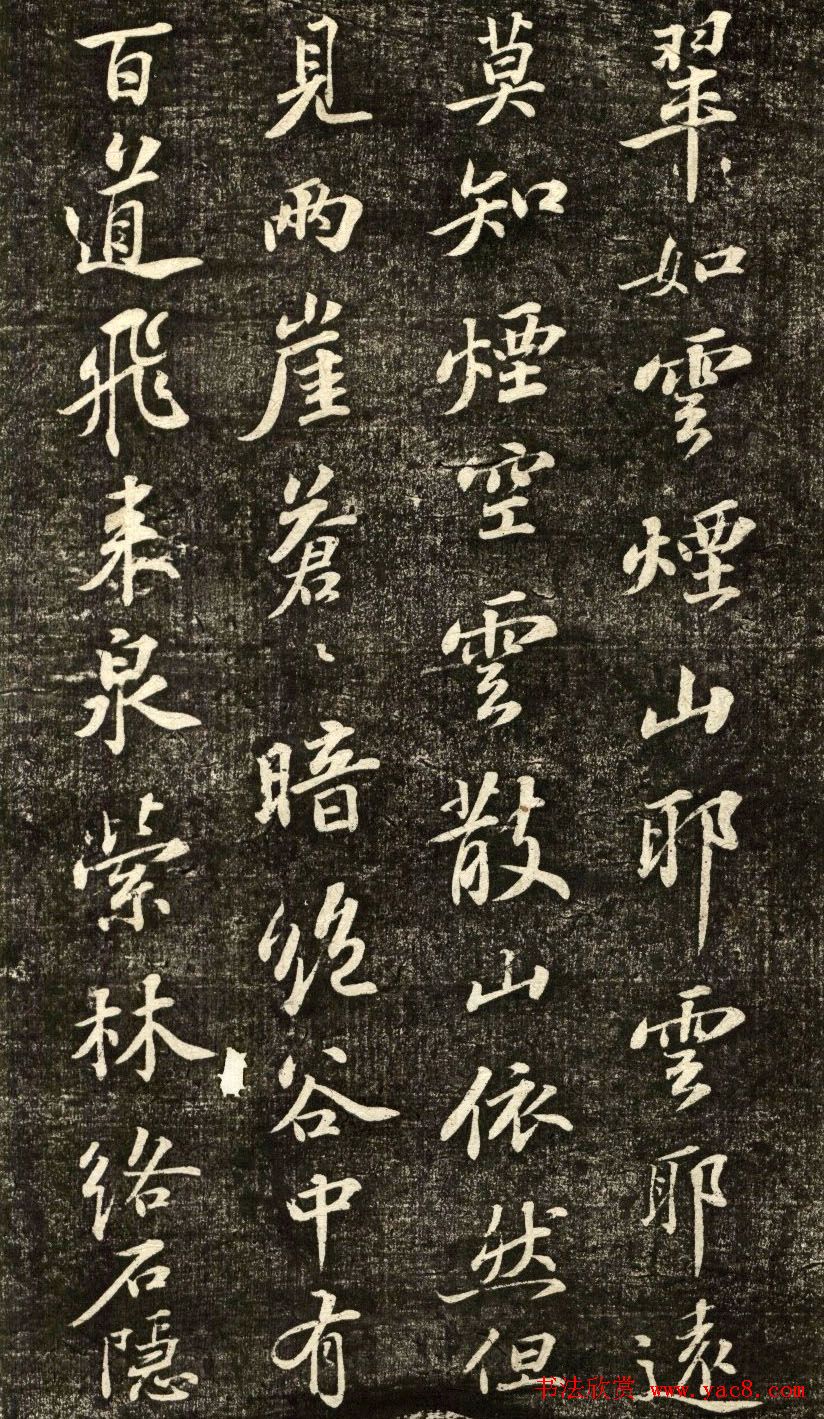 翠如雲煙山耶雲耶遠
莫知煙空雲散山依然但
見兩崖蒼〻暗絕谷中有
百道飛來泉縈林絡石隱
书法欣赏 www.yac8.com